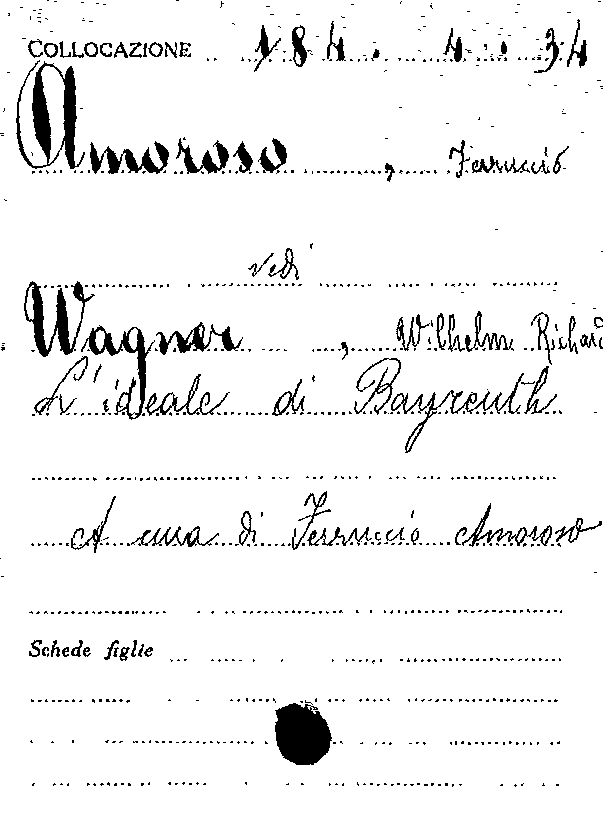 COLLOCAZIONE 184. 4. 34
Amoroso, Ferruccio
vedi
Wagner, Wilhelm Richard
L'ideale di Bayreuth
A cura di Ferruccio Amoroso
Schede figlie